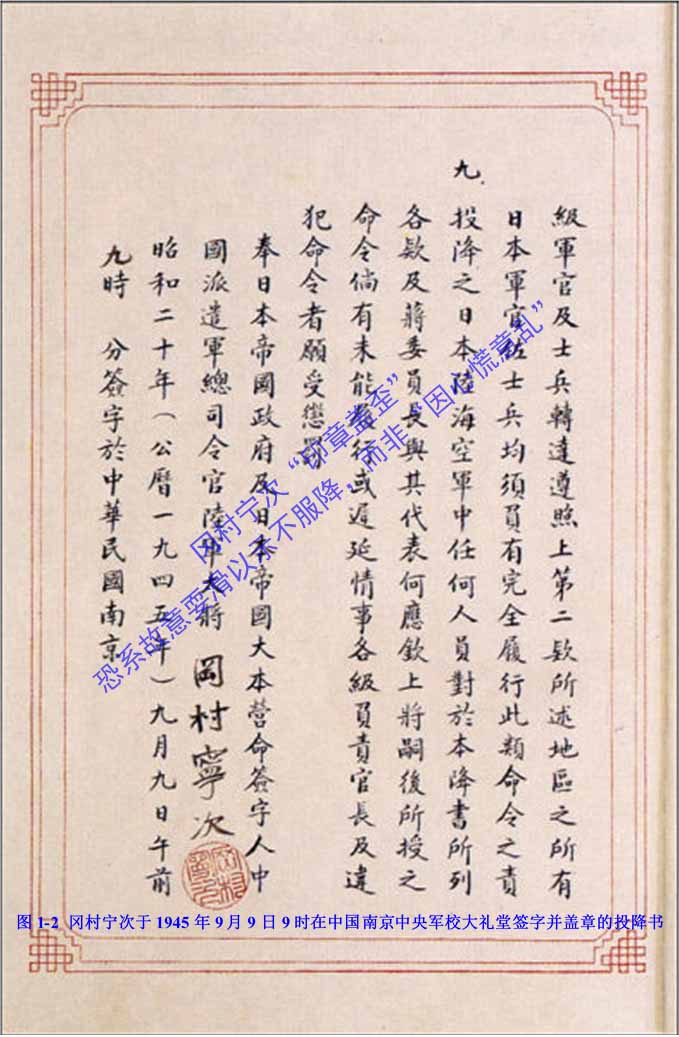 級軍官及士兵轉達遵照上第二欵所述地區之所有
日本軍官佐士兵均須負有完全履行此類命令之責
九、投降之日本陸海空軍中任何人員對於本降書所列
各欵及蔣委員長與其代表何應欽上將嗣後所授之
命令倘有未能履行或遲延情事各級負責官長及違
犯命令者願受懲罰
奉日本帝國政府及日本帝國大本營命簽字人中
國派遣軍總司令官陸軍大將 岡村寧次
昭和二十年(公曆一九四五年)九月九日午前
九時 分簽字於中華民國南京
冈村宁次“印章盖歪”
恐系故意耍滑以示不服降，而非“因心慌意乱”
图 1-2 冈村宁次于 1945 年 9 月 9 日 9 时在中国南京中央军校大礼堂签字并盖章的投降书